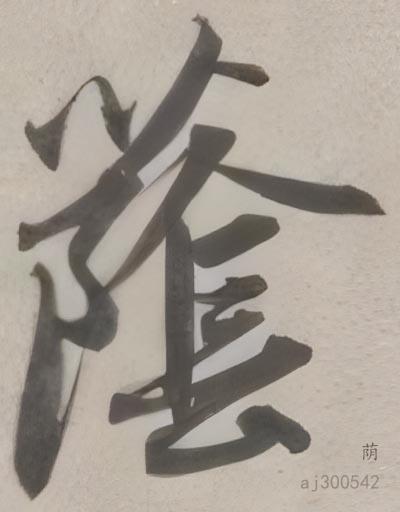 蔭
荫
aj300542